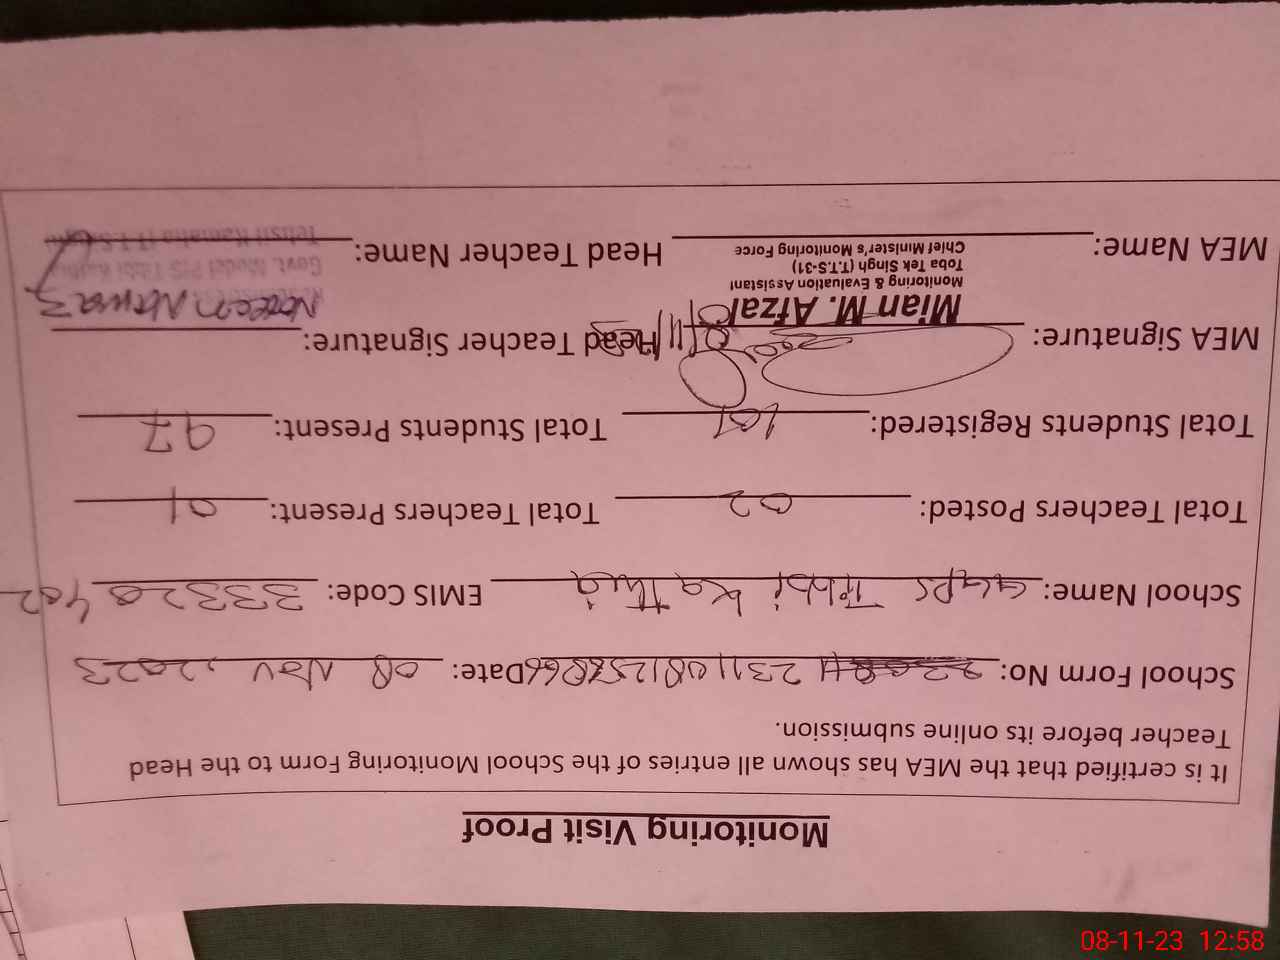 Monitoring Visit Proof
It is certified that the MEA has shown all entries of the School Monitoring Form to the Head
Teacher before its online submission.
School Form No: Date: 08 Nov, 2023
School Name: GGPS Tibbi Kathia EMIS Code: 33320402
Total Teachers Posted: 02 Total Teachers Present: 01
Total Students Registered: 101 Total Students Present: 97
MEA Signature: Head Teacher Signature:
Mian M. Afzal
Monitoring & Evaluation Assistant
Toba Tek Singh (T.T.S-31)
Chief Minister's Monitoring Force
MEA Name: Head Teacher Name:
08-11-23 12:58